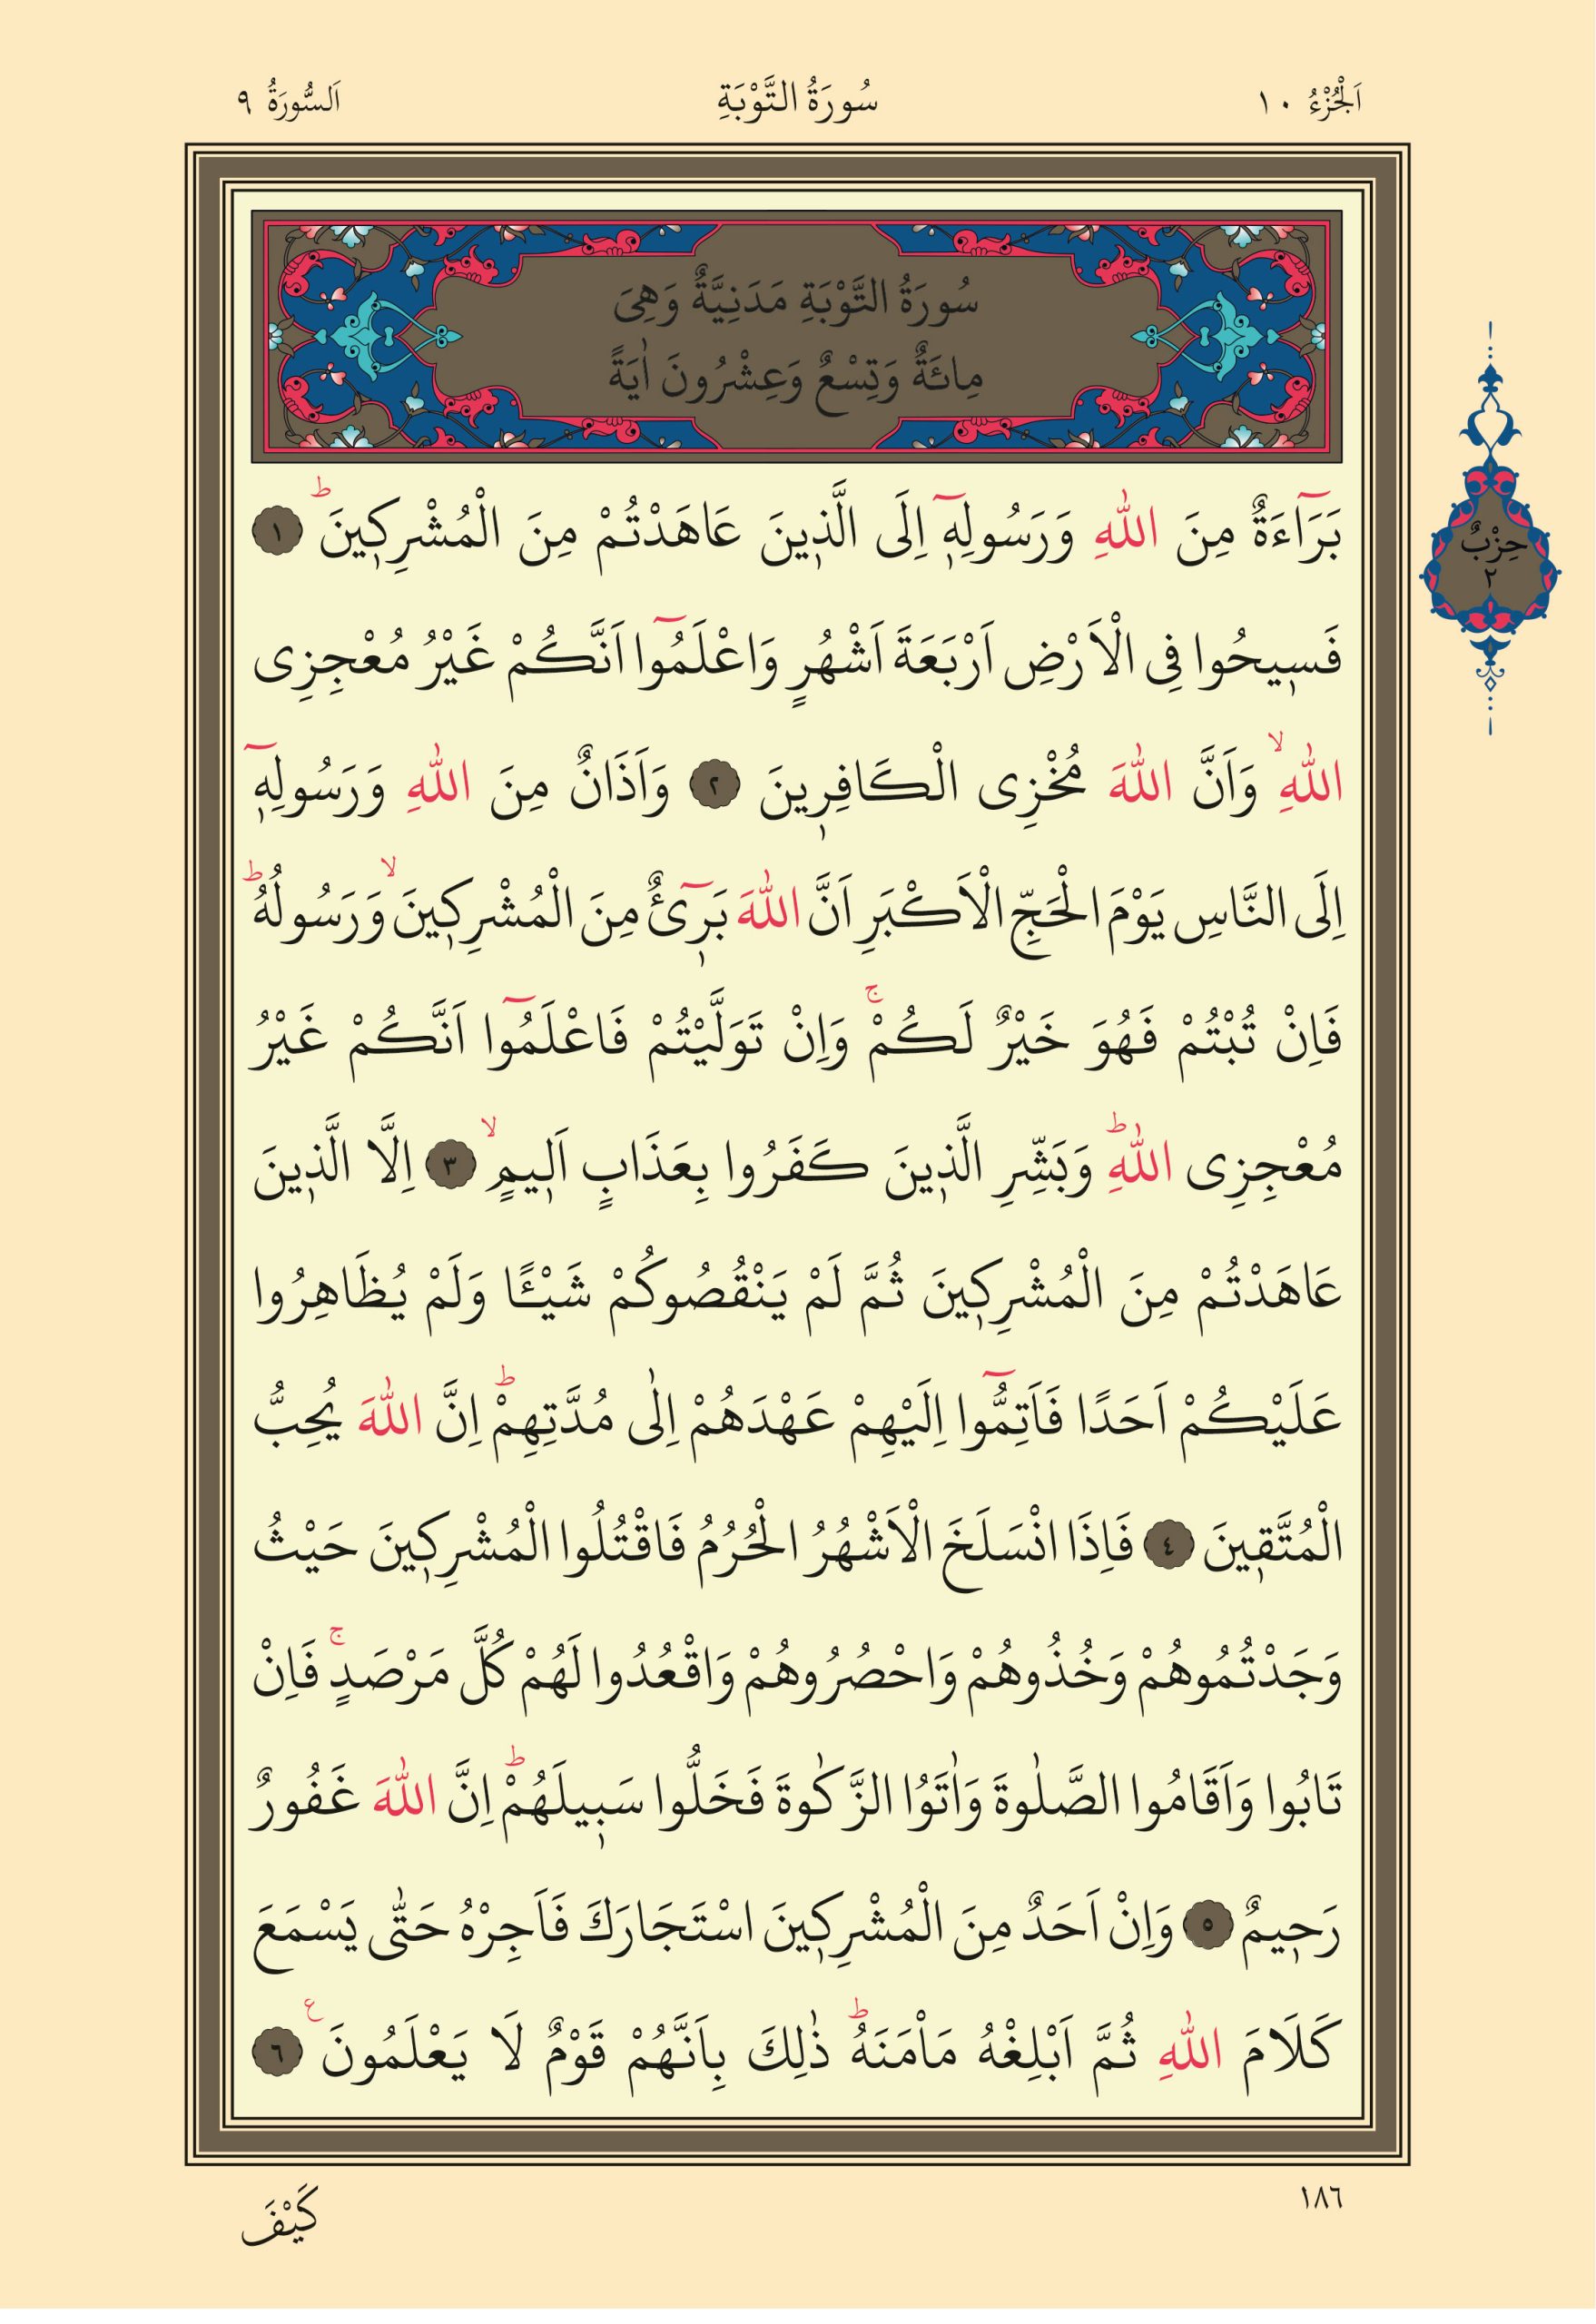 اَلْجُزْءُ ١٠
سُورَةُ التَّوْبَةِ
اَلسُّورَةُ ٩
سُورَةُ التَّوْبَةِ مَدَنِيَّةٌ وَهِىَ
مِائَةٌ وَتِسْعٌ وَعِشْرُونَ اٰيَةً
حِزْبٌ
٢
بَرَٓاءَةٌ مِنَ اللّٰهِ وَرَسُولِه۪ٓ اِلَى الَّذ۪ينَ عَاهَدْتُمْ مِنَ الْمُشْرِك۪ينَۜ ﴿١﴾
فَس۪يحُوا فِى الْاَرْضِ اَرْبَعَةَ اَشْهُرٍ وَاعْلَمُٓوا اَنَّكُمْ غَيْرُ مُعْجِزِى
اللّٰهِۙ وَاَنَّ اللّٰهَ مُخْزِى الْكَافِر۪ينَ ﴿٢﴾ وَاَذَانٌ مِنَ اللّٰهِ وَرَسُولِه۪ٓ
اِلَى النَّاسِ يَوْمَ الْحَجِّ الْاَكْبَرِ اَنَّ اللّٰهَ بَر۪ٓىءٌ مِنَ الْمُشْرِك۪ينَۙ وَرَسُولُهُۜ
فَاِنْ تُبْتُمْ فَهُوَ خَيْرٌ لَكُمْۚ وَاِنْ تَوَلَّيْتُمْ فَاعْلَمُٓوا اَنَّكُمْ غَيْرُ
مُعْجِزِى اللّٰهِۜ وَبَشِّرِ الَّذ۪ينَ كَفَرُوا بِعَذَابٍ اَل۪يمٍۙ ﴿٣﴾ اِلَّا الَّذ۪ينَ
عَاهَدْتُمْ مِنَ الْمُشْرِك۪ينَ ثُمَّ لَمْ يَنْقُصُوكُمْ شَيْـًٔا وَلَمْ يُظَاهِرُوا
عَلَيْكُمْ اَحَدًا فَاَتِمُّٓوا اِلَيْهِمْ عَهْدَهُمْ اِلٰى مُدَّتِهِمْۜ اِنَّ اللّٰهَ يُحِبُّ
الْمُتَّق۪ينَ ﴿٤﴾ فَاِذَا انْسَلَخَ الْاَشْهُرُ الْحُرُمُ فَاقْتُلُوا الْمُشْرِك۪ينَ حَيْثُ
وَجَدْتُمُوهُمْ وَخُذُوهُمْ وَاحْصُرُوهُمْ وَاقْعُدُوا لَهُمْ كُلَّ مَرْصَدٍۚ فَاِنْ
تَابُوا وَاَقَامُوا الصَّلٰوةَ وَاٰتَوُا الزَّكٰوةَ فَخَلُّوا سَب۪يلَهُمْۜ اِنَّ اللّٰهَ غَفُورٌ
رَح۪يمٌ ﴿٥﴾ وَاِنْ اَحَدٌ مِنَ الْمُشْرِك۪ينَ اسْتَجَارَكَ فَاَجِرْهُ حَتّٰى يَسْمَعَ
كَلَامَ اللّٰهِ ثُمَّ اَبْلِغْهُ مَأْمَنَهُۜ ذٰلِكَ بِاَنَّهُمْ قَوْمٌ لَا يَعْلَمُونَ ع ﴿٦﴾
١٨٦
كَيْفَ